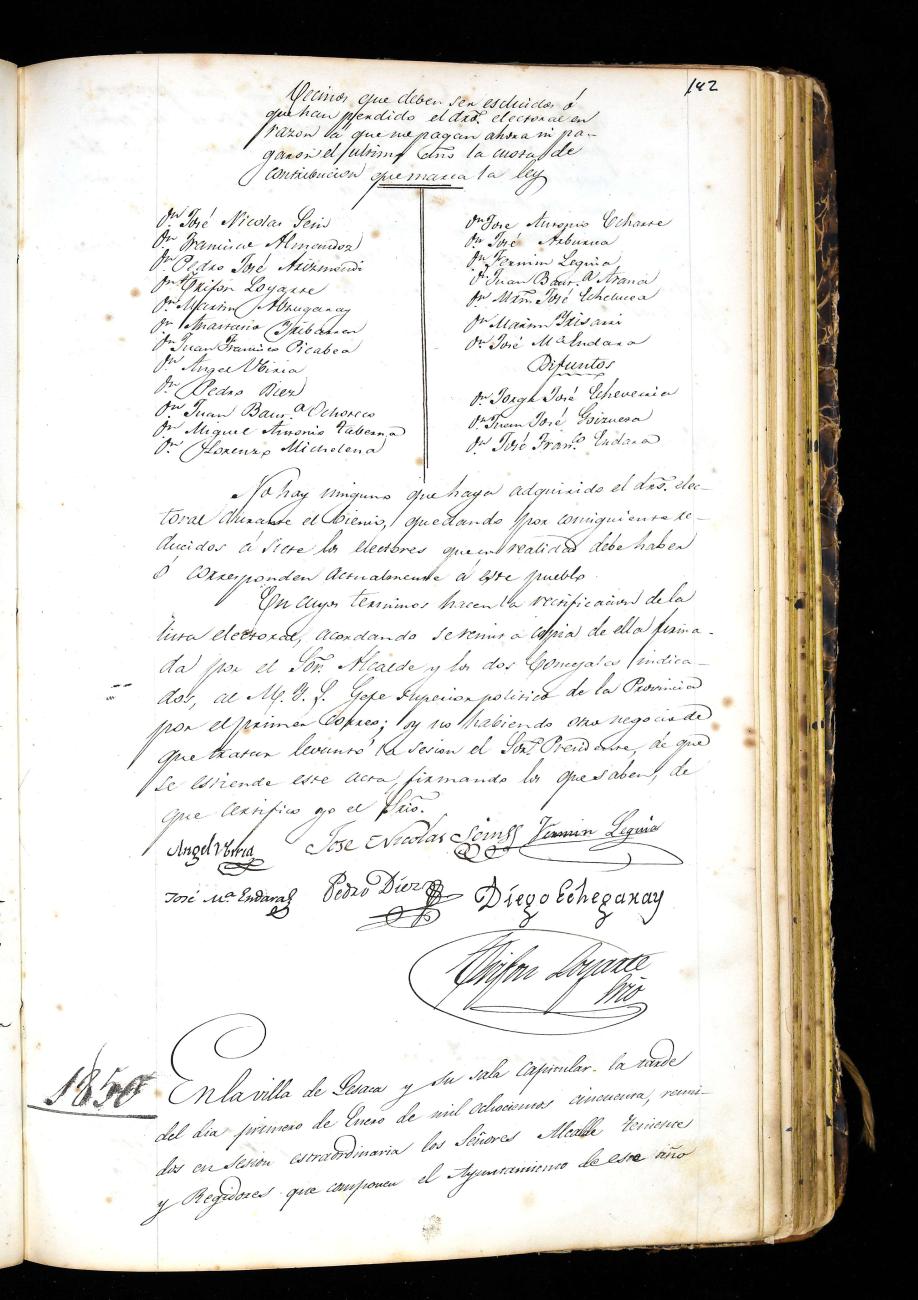 182
Vecinos que deben ser escluidos ó
que han perdido el dro. electoral en
razon á que no pagan ahora ni pa-
garon el ultimo año la cuota de
contribucion que marca la ley
Dn. José Nicolas Sein
Dn. Francisco Almandoz
Dn. Pedro José Arizmendi
Dn. Trifon Loyarte
Dn. Martin
Dn. Anastasio Iribarren
Dn. Juan Francisco Picabea
Dn. Angel Viria
Dn. Pedro Diez
Dn. Juan Baut.a Ochoteco
Dn. Miguel Antonio Taberna
Dn. Lorenzo Michelena
Dn. Jose Antonio Echarte
Dn. José Arburua
Dn. Fermin Leguia
Dn. Juan Baut.a Arana
Dn. Mrn. José Echeluea
Dn. Martin Irisarri
Dn. José Ma. Endara
Difuntos
Dn. Jorge José Echeverria
Dn. Juan José Goizueta
Dn. José Fran.co Endara
No hay ninguno que haya adquirido el dro. elec-
toral durante el bienio, quedando por consiguiente re-
ducidos á siete los electores que en realidad debe haber
ó corresponden actualmente á este pueblo.
En cuyos terminos hacen la rectificacion de la
lista electoral, acordando se remita copia de ella firma-
da por el Sor. Alcalde y los dos Concejales indica-
dos, al M. Y. S. Gefe superior politico de la Provincia
por el primer correo; y no habiendo otro negocio de
que tratar levantó la sesion el Sor. Presidente, de que
se estiende este acta, firmando los que saben, de
que certifico yo el Srio.
Angel Viria José Nicolas Sein Fermin Leguia
José Ma. Endara Pedro Diez Diego Echegaray
Trifon Loyarte
Srio
1850
En la villa de Lesaca y su sala capitular la tarde
del dia primero de Enero de mil ochocientos cincuenta, reuni-
dos en sesion estraordinaria los Señores Alcalde Teniente
y Regidores que componen el Ayuntamiento de este año